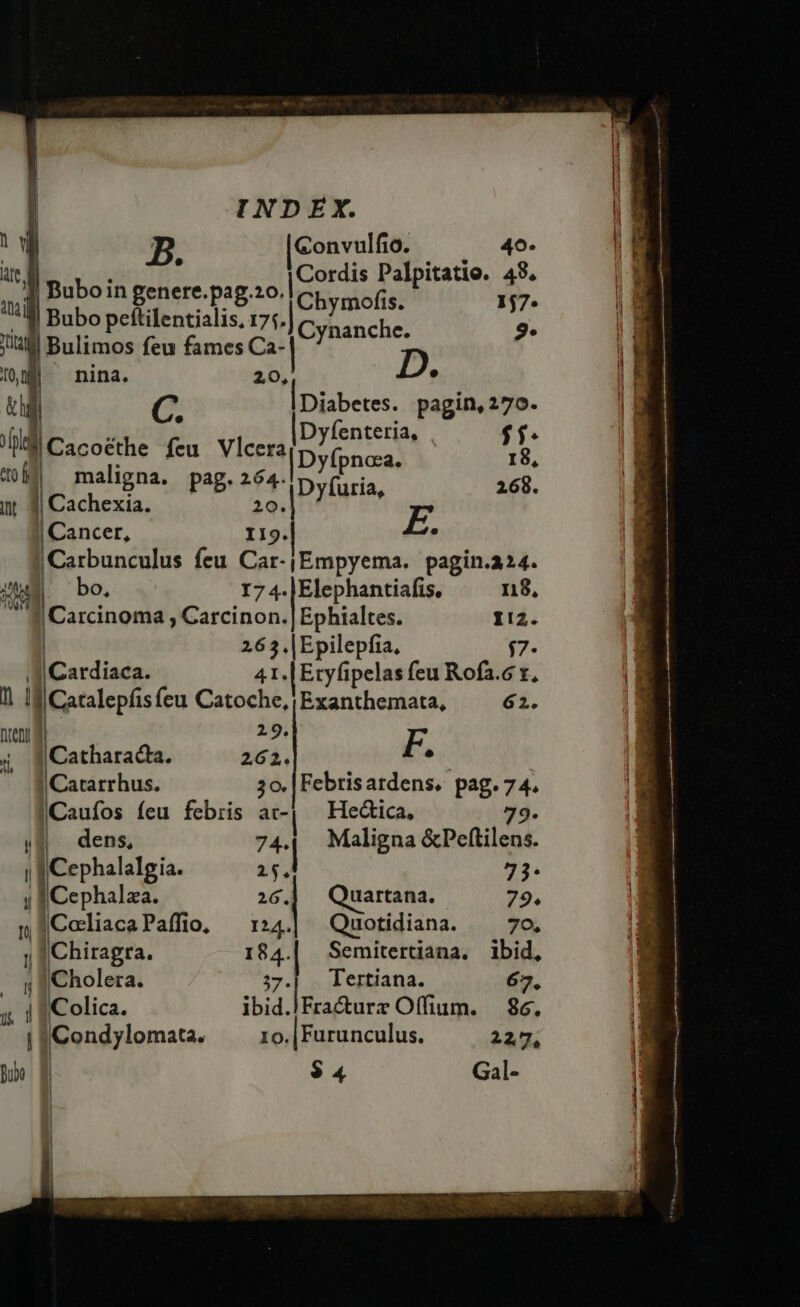 INDEX.
B.
Bubo in genere. pag. 20.
Bubo peſtilentialis, 175.
Bulimos ſeu fames Ca-
nina. 20,
C.
Cacoëthe ſeu Vlcera
maligna. pag. 264.
Cachexia. 20.
Cancer, 119.
Carbunculus ſeu Car-
bo, 174.
Carcinoma, Carcinon.
263.
Cardiaca. 41.
Catalepſis ſeu Catoche,
29.
Catharacta. 262.
Catarrhus. 30.
Cauſos ſeu febris ar-
dens, 74.
Cephalalgia. 25.
Cephalæa. 26.
Cœliaca Paſſio, 124.
Chiragra. 184.
Cholera. 37.
Colica. ibid.
Condylomata. 10.
Convulſio. 40.
Cordis Palpitatio. 48.
Chymoſis. 157.
Cynanche. 9.
D.
Diabetes. pagin, 270.
Dyſenteria, 55.
Dyſpnœa. 18,
Dyſuria, 268.
E.
Empyema. pagin. 224.
Elephantiaſis, 118,
Ephialtes. 112.
Epilepſia, 57.
Eryſipelas ſeu Roſa. 61,
Exanthemata, 62.
F.
Febris ardens. pag. 74,
Hectica, 79.
Maligna & Peſtilens.
73.
Quartana. 79,
Quotidiana. 70,
Semitertiana. ibid,
Tertiana. 67,
Fracturæ Oſſium. 86,
Furunculus. 227,
S 4 Gal-